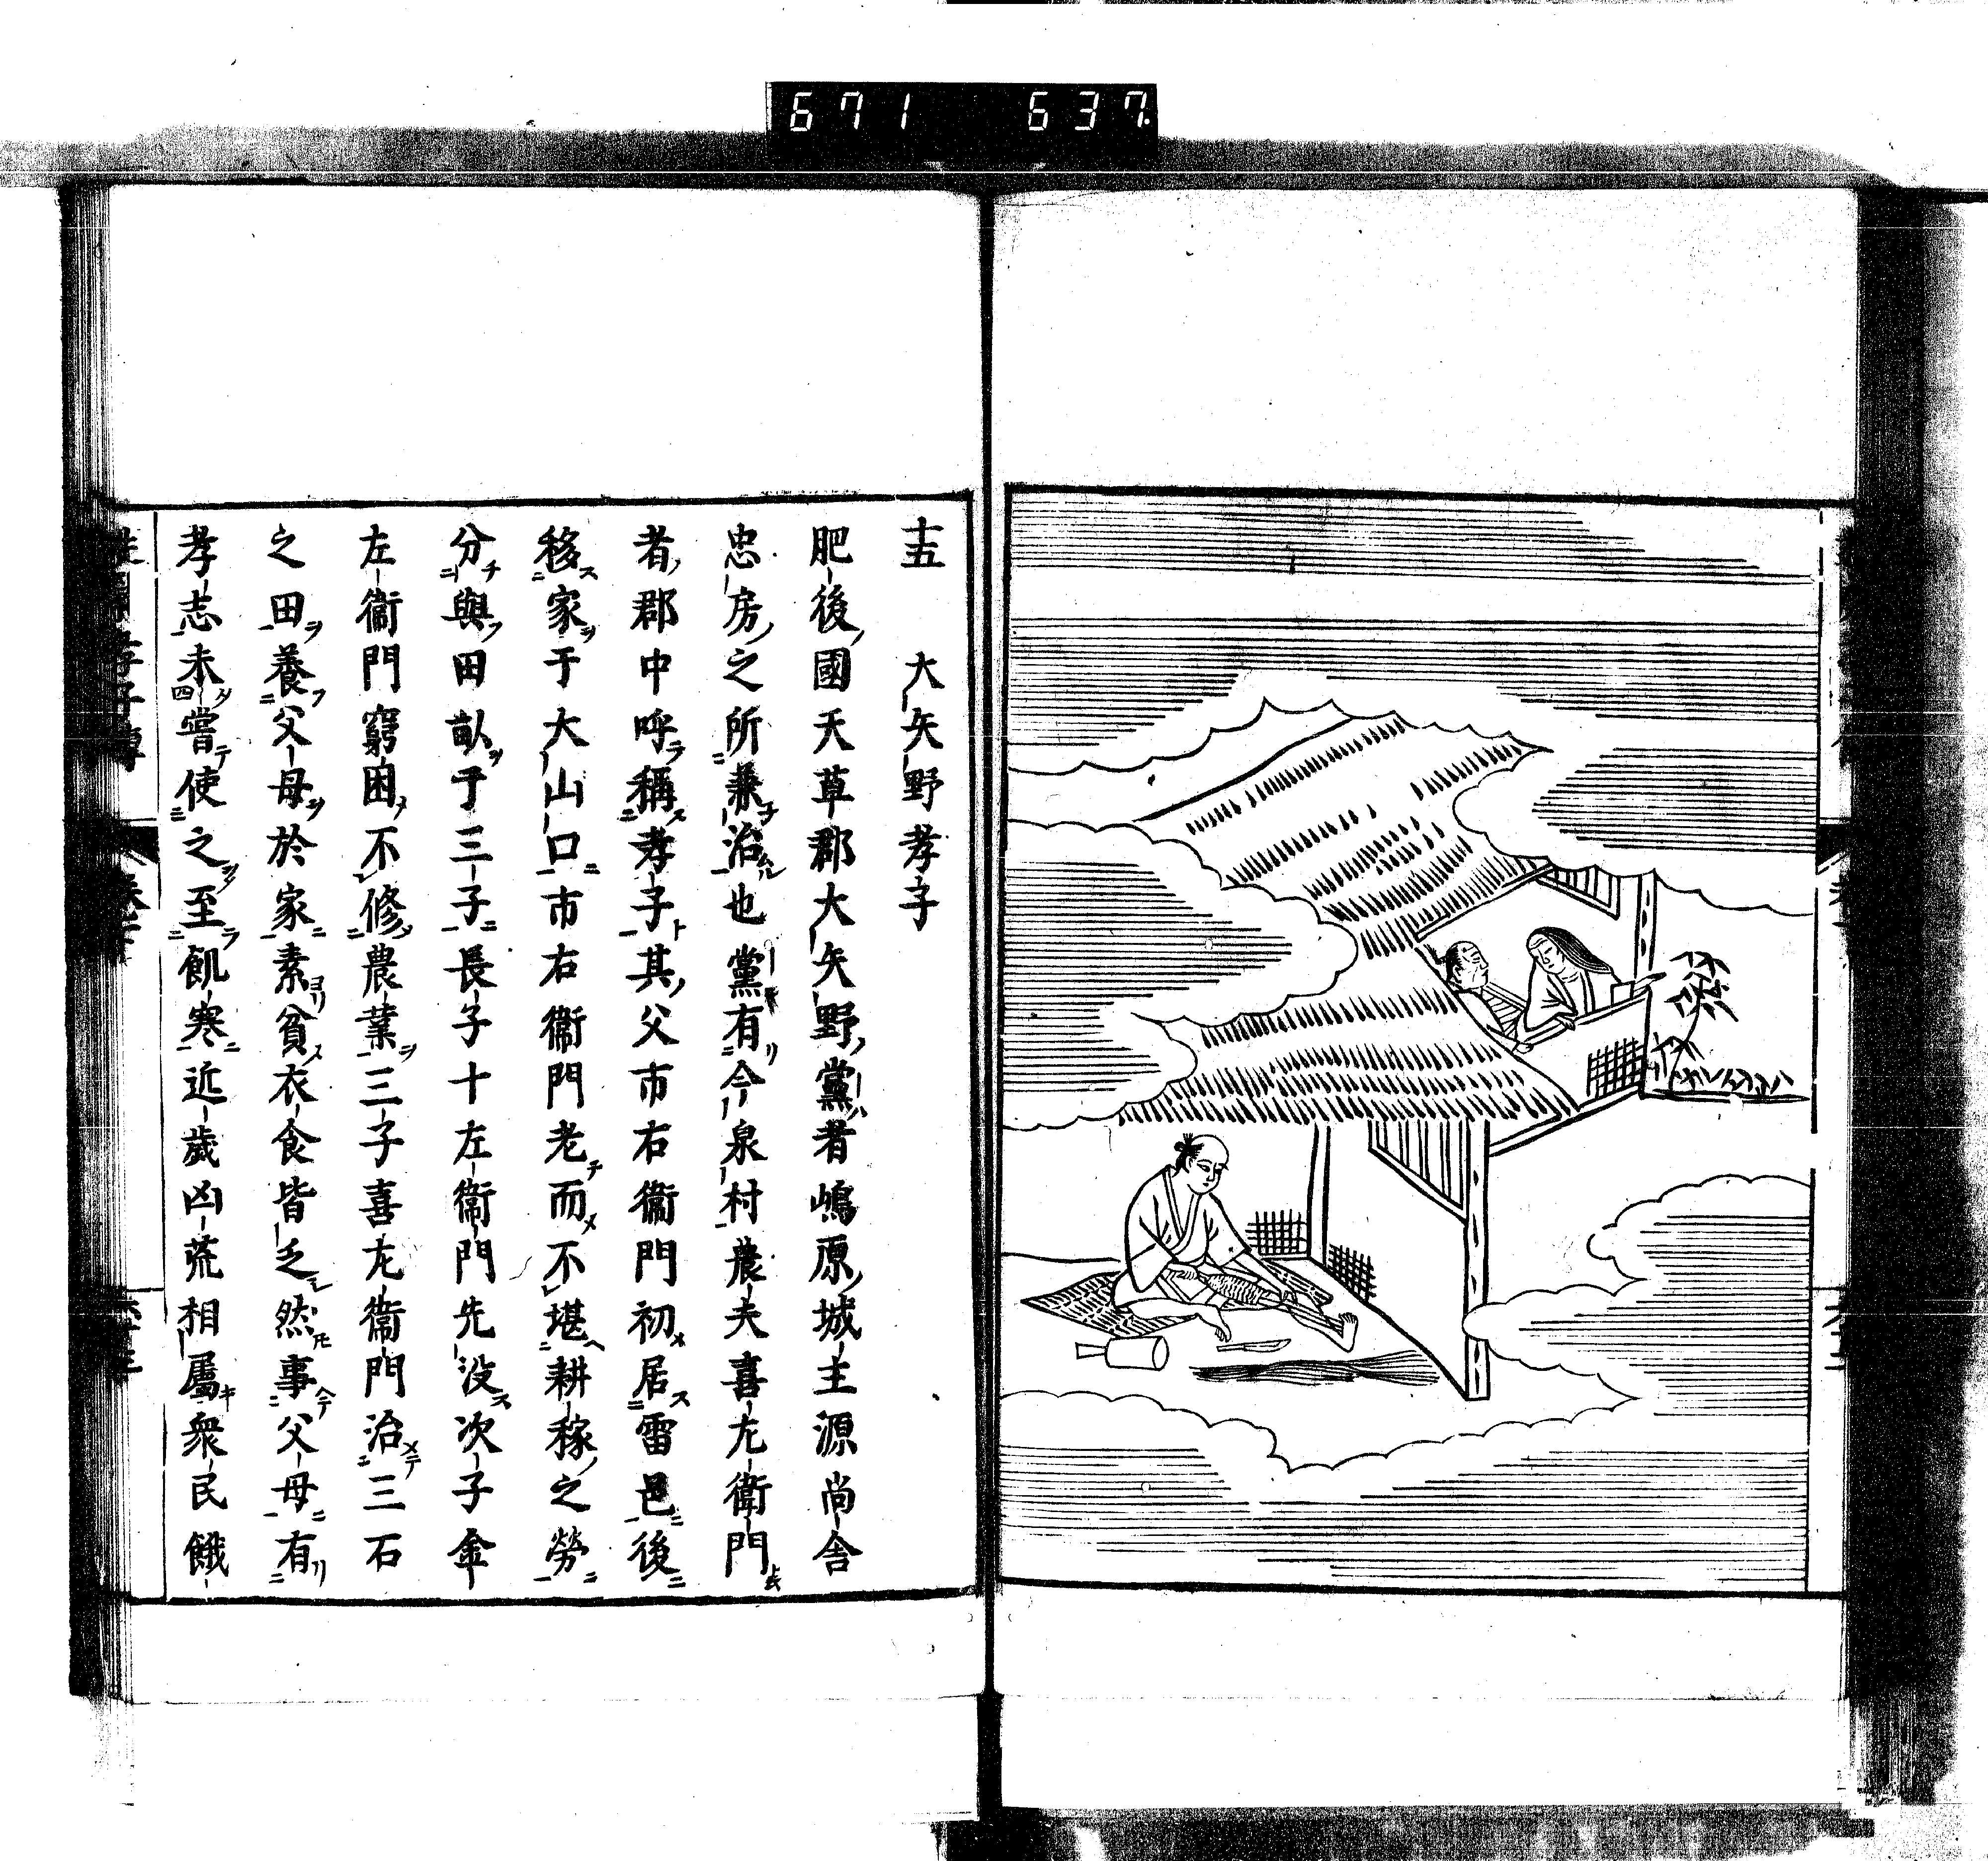 671 637
十五 大矢野孝子
肥後國天草郡大矢野黨者嶋原城主源尚舎
忠房之所兼治也黨有今泉村農夫喜左衛門
者郡中呼稱孝子其父市右衞門初居雷邑後
移家于大山口市右衞門老而不堪耕稼之勞
分與田畝于三子長子十左衞門先没次子金
左衞門窮困不修農業三子喜左衞門治三石
之田養父母於家素貧衣食皆乏然事父母有
孝志未嘗使之至飢寒近歳凶荒相屬衆民餓